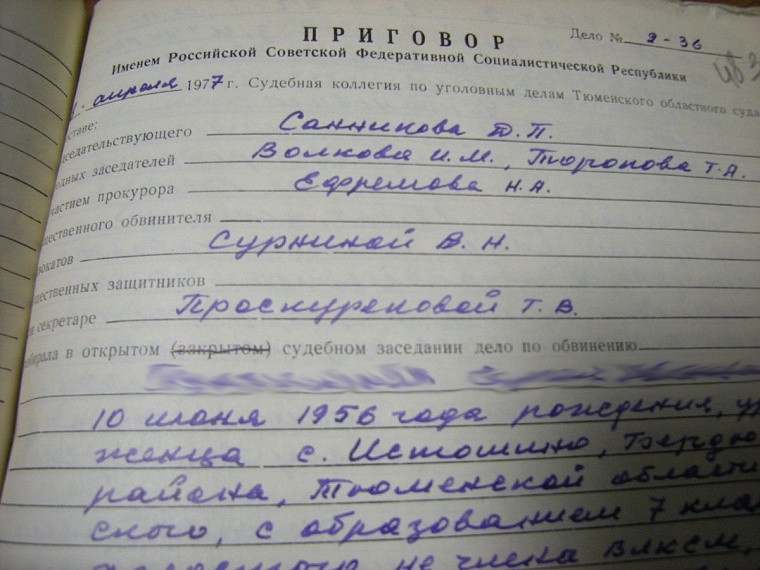 ПРИГОВОР
Дело № 2-36
Именем Российской Советской Федеративной Социалистической Республики
апреля 1977 г. Судебная коллегия по уголовным делам Тюменского областного суда
ставе:
седательствующего Санникова Д. П.
одных заседателей Волкова И. М., Торопова Т. А.
стием прокурора Ефремова Н. А.
щественного обвинителя
вокатов Сурниной В. Н.
щественных защитников
секретаре Проскуряковой Т. В.
обирала в открытом (закрытом) судебном заседании дело по обвинению
10 июня 1956 года рождения, ур
женца с. Истошино, Бердюж
района, Тюменской области
ского, с образованием 7 клас
не члена ВЛКСМ,